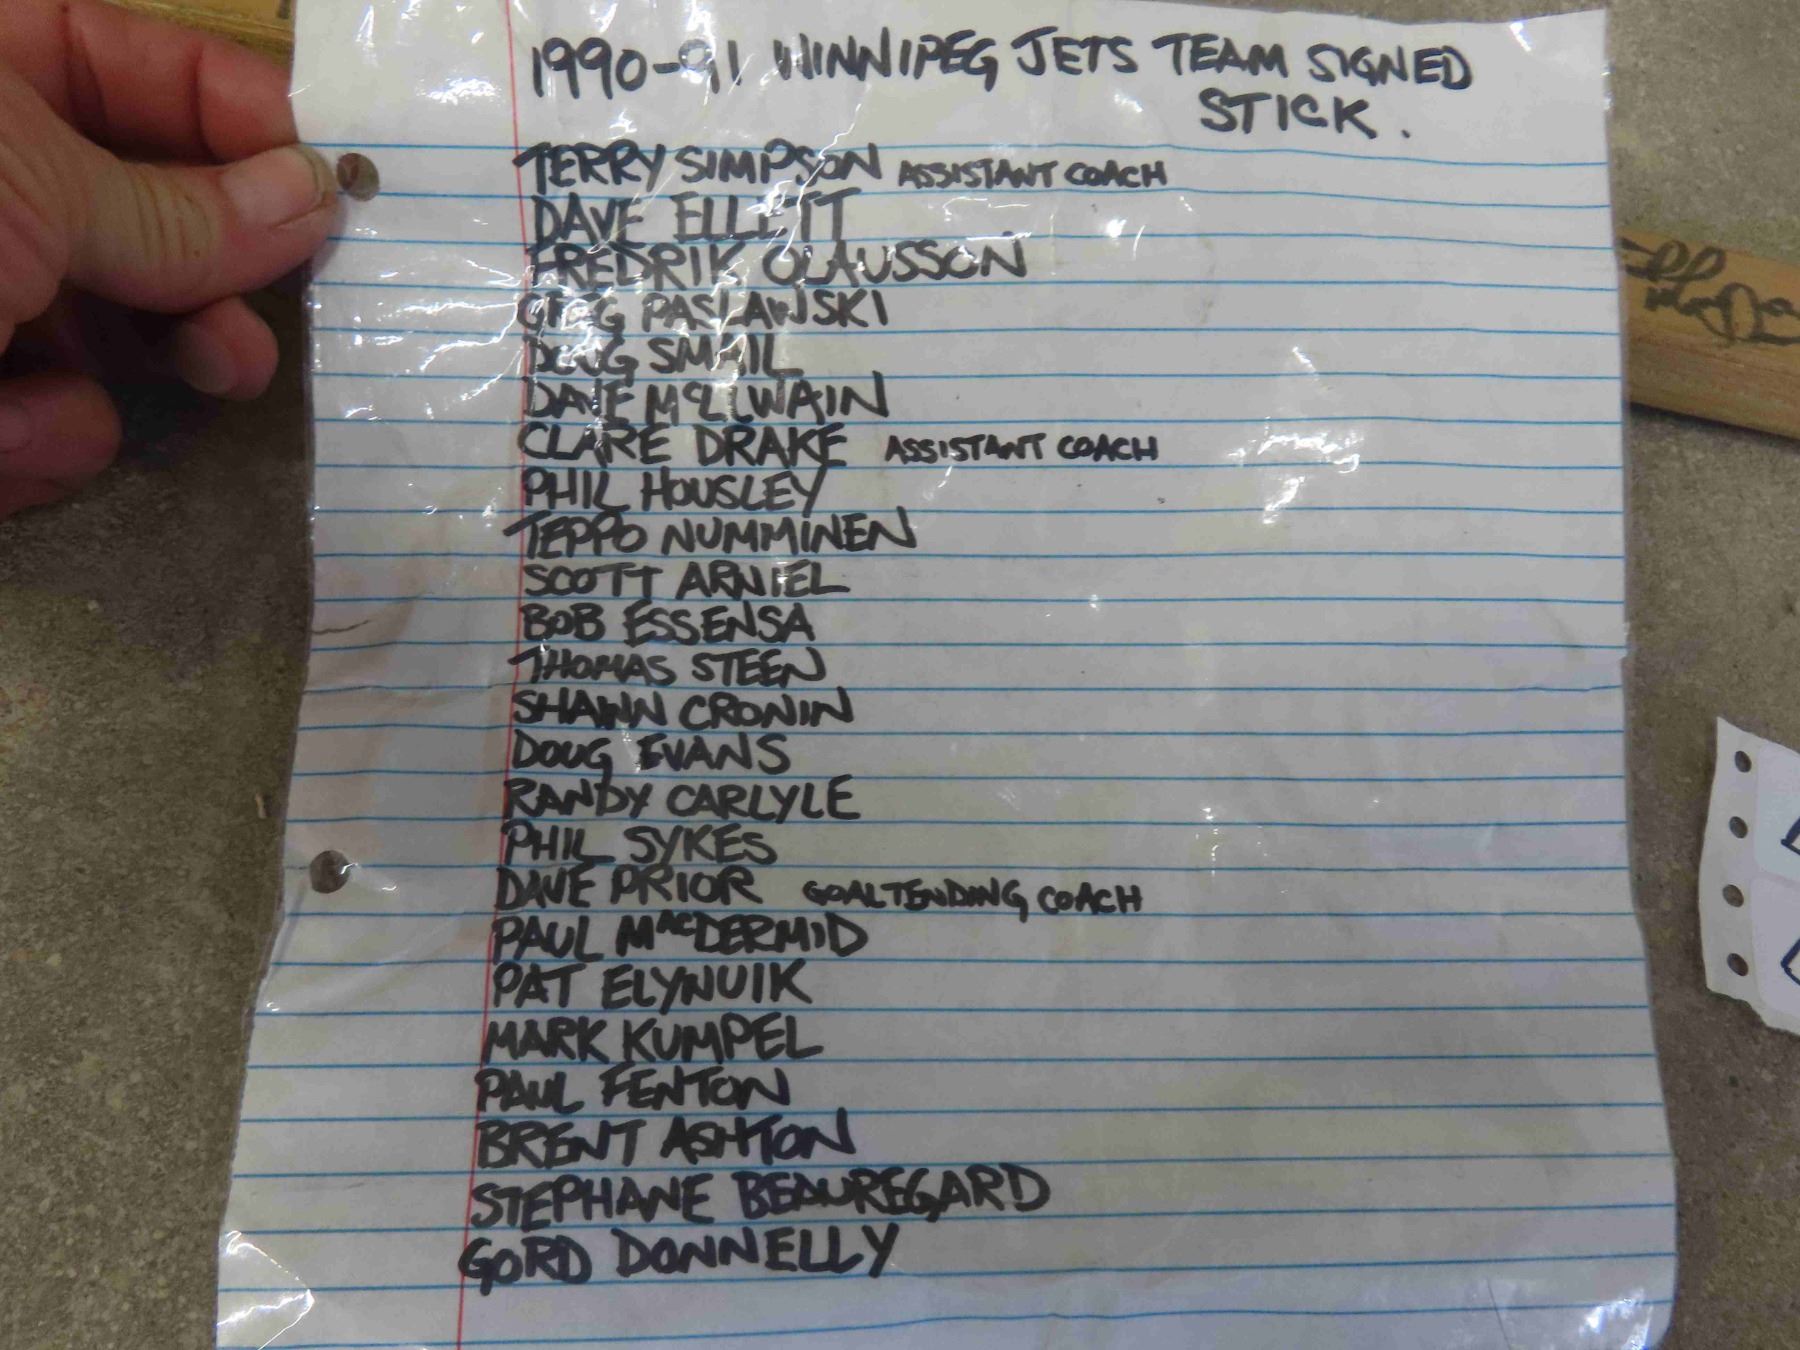 1990-91 WINNIPEG JETS TEAM SIGNED
STICK.
TERRY SIMPSON ASSISTANT COACH
DAVE ELLETT
FREDRIK OLAUSSON
GREG PASLAWSKI
DOUG SMAIL
DAVE McLLWAIN
CLARE DRAKE ASSISTANT COACH
PHIL HOUSLEY
TEPPO NUMMINEN
SCOTT ARNIEL
BOB ESSENSA
THOMAS STEEN
SHAWN CRONIN
DOUG EVANS
RANDY CARLYLE
PHIL SYKES
DAVE PRIOR GOALTENDING COACH
PAUL MACDERMID
PAT ELYNUIK
MARK KUMPEL
PAUL FENTON
BRENT ASHTON
STEPHANE BEAUREGARD
GORD DONNELLY